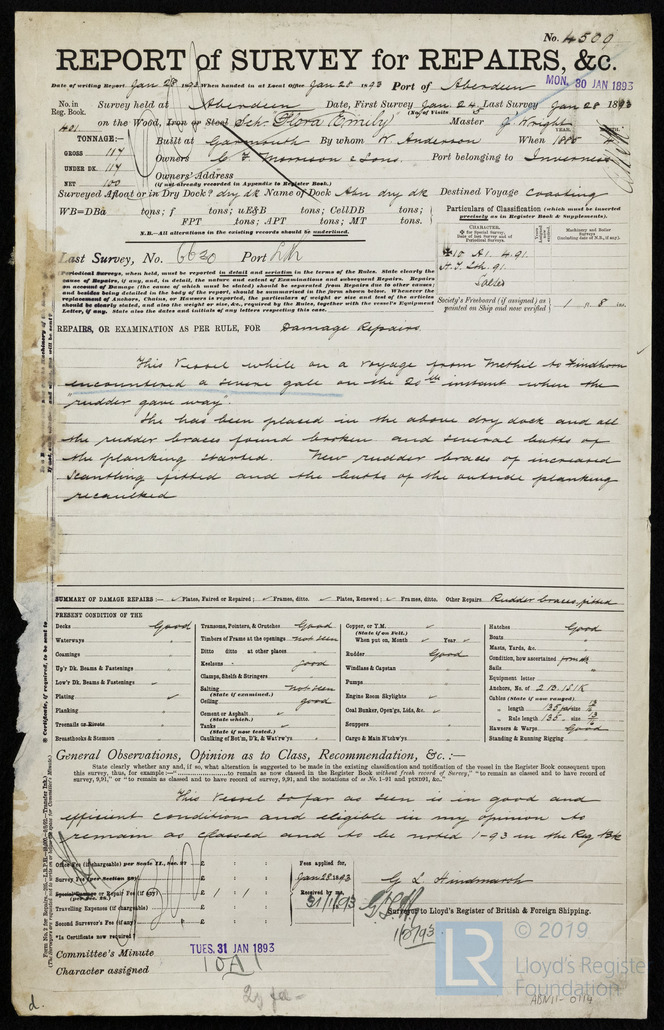 No. 4509
REPORT of SURVEY for REPAIRS, &c.
Date of writing Report Jan 28 1893 When handed in at Local Office Jan 28 1893 Port of Aberdeen
MON. 30 JAN 1893
No. in Reg. Book. Survey held at Aberdeen Date, First Survey Jan 24 Last Survey Jan 28 1893
(No. of Visits 5)
401 on the Wood, Iron or Steel Sch Flora Emily Master J. Wright
TONNAGE:— Built at Garmouth By whom W Anderson When 1885
YEAR.
GROSS 117 Owners & Sons. Port belonging to Inverness
UNDER DK. 117 Owners' Address
NET 100 (if not already recorded in Appendix to Register Book.)
Surveyed Afloat or in Dry Dock? dry dk Name of Dock Abn dry dk Destined Voyage Coasting
WB=DBa tons; f tons; uE&B tons; CellDB tons;
FPT tons; APT tons; MT tons.
N.B.—All alterations in the existing records should be underlined.
Particulars of Classification (which must be inserted precisely as in Register Book & Supplements).
CHARACTER.
Machinery and Boiler Surveys
10 A1. 4.91.
Salted
Last Survey, No. 6620 Port Lth
Periodical Surveys, when held, must be reported in detail and seriatim in the terms of the Rules. State clearly the
cause of Repairs, if any, and, in detail, the nature and extent of Examinations and subsequent Repairs. Repairs
on account of Damage (the cause of which must be stated) should be separated from Repairs due to other causes;
and besides being detailed in the body of the report, should be summarised in the form shown below. Whenever the
replacement of Anchors, Chains, or Hawsers is reported, the particulars of weight or size and test of the articles
should be clearly stated, and also the weight or size, &c., required by the Rules, together with the vessel's Equipment
Letter, if any. State also the dates and initials of any letters respecting this case.
Society's Freeboard (if assigned) as painted on Ship and now verified 1 ft. 8 ins.
REPAIRS, OR EXAMINATION AS PER RULE, FOR Damage Repairs
This Vessel while on a voyage from Methil to Findhorn
encountered a severe gale on the 20th instant when the
"rudder gave way".
She has been placed in the above dry dock and all
the rudder braces found broken and several butts of
the planking started. New rudder braces of increased
scantling fitted and the butts of the outside planking
recaulked
SUMMARY OF DAMAGE REPAIRS:— Plates, Faired or Repaired; Frames, ditto. Plates, Renewed; Frames, ditto. Other Repairs Rudder braces, fitted
PRESENT CONDITION OF THE
Decks Good
Waterways "
Coamings "
Up'r Dk. Beams & Fastenings "
Low'r Dk. Beams & Fastenings "
Plating
Planking "
Treenails or Rivets "
Breasthooks & Stemson "
Transoms, Pointers, & Crutches Good
Timbers of Frame at the openings not seen
Ditto ditto at other places "
Keelsons good
Clamps, Shelfs & Stringers "
Salting (State if examined.) not seen
Ceiling good
Cement or Asphalt (State which.)
Tanks (State if now tested.)
Caulking of Bot'm, D'k, & Wat'rw'ys "
Copper, or Y.M. (State if on Felt.)
When put on, Month Year
Rudder Good
Windlass & Capstan "
Pumps "
Engine Room Skylights
Coal Bunker, Open'gs, Lids, &c.
Scuppers "
Cargo & Main H'tchw'ys "
Hatches Good
Boats "
Masts, Yards, &c. "
Condition, how ascertained from dk
Sails "
Equipment letter
Anchors, No. of 2 B. 1 S. 1 K
Cables (State if now ranged)
" length 135 per size
" Rule length 135. size
Hawsers & Warps Good
Standing & Running Rigging "
General Observations, Opinion as to Class, Recommendation, &c.:—
State clearly whether any, and if so, what alteration is suggested to be made in the existing classification and notification of the vessel in the Register Book consequent upon
this survey, thus, for example:—"..........to remain as now classed in the Register Book without fresh record of Survey," "to remain as classed and to have record of
survey, 9,91," or "to remain as classed and to have record of survey, 9,91, and the notations of ss No. 1-91 and ptND91, &c."
This Vessel so far as seen is in good and
efficient condition and eligible in my opinion to
remain as classed and to be noted 1-93 in the Reg Bk
Office Fee (if chargeable) per Scale II., Sec. 27 £ : :
Survey Fee (per Section 29) £ : :
Special Damage or Repair Fee (if any) (per Sec. 28.) £ 1 : :
Travelling Expenses (if chargeable) £ : :
Second Surveyor's Fee (if any) £ : :
*Is Certificate now required?
Fees applied for,
Jan 28 1893
Received by me,
31/1/1893
G L Hindmarsh
Surveyor to Lloyd's Register of British & Foreign Shipping.
Committee's Minute TUES. 31 JAN 1893
Character assigned 10A1
d.
LR
© 2019
Lloyd's Register
Foundation
ABN11-0114